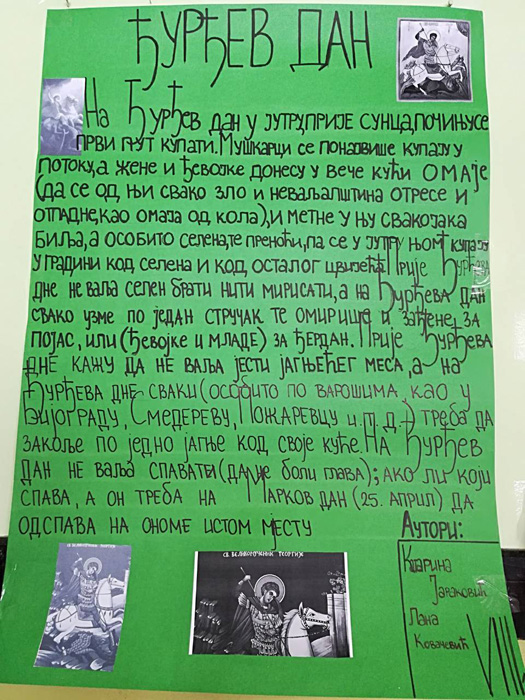 ЂУРЂЕВ ДАН
НА ЂУРЂЕВ ДАН У ЈУТРУ,ПРИЈЕ СУНЦА,ПОЧИЊУ СЕ
ПРВИ ПУТ КУПАТИ. МУШКАРЦИ СЕ ПОНАЈВИШЕ КУПАЈУ У
ПОТОКУ,А ЖЕНЕ И ЂЕВОЈКЕ ДОНЕСУ У ВЕЧЕ КУЋИ ОМАЈЕ
(ДА СЕ ОД ЊИ СВАКО ЗЛО И НЕВАЉАЛШТИНА ОТРЕСЕ И
ОТПАДНЕ,КАО ОМАЈА ОД КОЛА),И МЕТНЕ У ЊУ СВАКОЈАКА
БИЉА,А ОСОБИТО СЕЛЕНА,ТЕ ПРЕНОЋИ,ПА СЕ У ЈУТРУ ЊОМ КУПАЈУ
У ГРАДИНИ КОД СЕЛЕНА И КОД ОСТАЛОГ ЦВИЈЕЋА. ПРИЈЕ ЂУРЂЕВА
ДНЕ НЕ ВАЉА СЕЛЕН БРАТИ НИТИ МИРИСАТИ, А НА ЂУРЂЕВА ДАН
СВАКО УЗМЕ ПО ЈЕДАН СТРУЧАК ТЕ ОМИРИШЕ И ЗАЂЕНЕ ЗА
ПОЈАС, ИЛИ (ЂЕВОЈКЕ И МЛАДЕ) ЗА ЂЕРДАН. ПРИЈЕ ЂУРЂЕВА
ДНЕ КАЖУ ДА НЕ ВАЉА ЈЕСТИ ЈАГЊЕЋЕГ МЕСА, А НА
ЂУРЂЕВА ДНЕ СВАКИ (ОСОБИТО ПО ВАРОШИМА, КАО У
БИЈОГРАДУ, СМЕДЕРЕВУ, ПОЖАРЕВЦУ И.Т.Д.) ТРЕБА ДА
ЗАКОЉЕ ПО ЈЕДНО ЈАГЊЕ КОД СВОЈЕ КУЋЕ. НА ЂУРЂЕВ
ДАН НЕ ВАЉА СПАВАТИ (ДА НЕ БОЛИ ГЛАВА); АКО ЛИ КОЈИ
СПАВА, А ОН ТРЕБА НА МАРКОВ ДАН (25. АПРИЛ) ДА
ОДСПАВА НА ОНОМЕ ИСТОМ МЈЕСТУ
АУТОРИ:
КАТАРИНА
ЈАРАКОВИЋ
ЛАНА
КОВАЧЕВИЋ
СВ. ВЕЛИКОМУЧЕНИК ГЕОРГИЈЕ
СВ. ВЕЛИКОМУЧЕНИК ГЕОРГИЈЕ